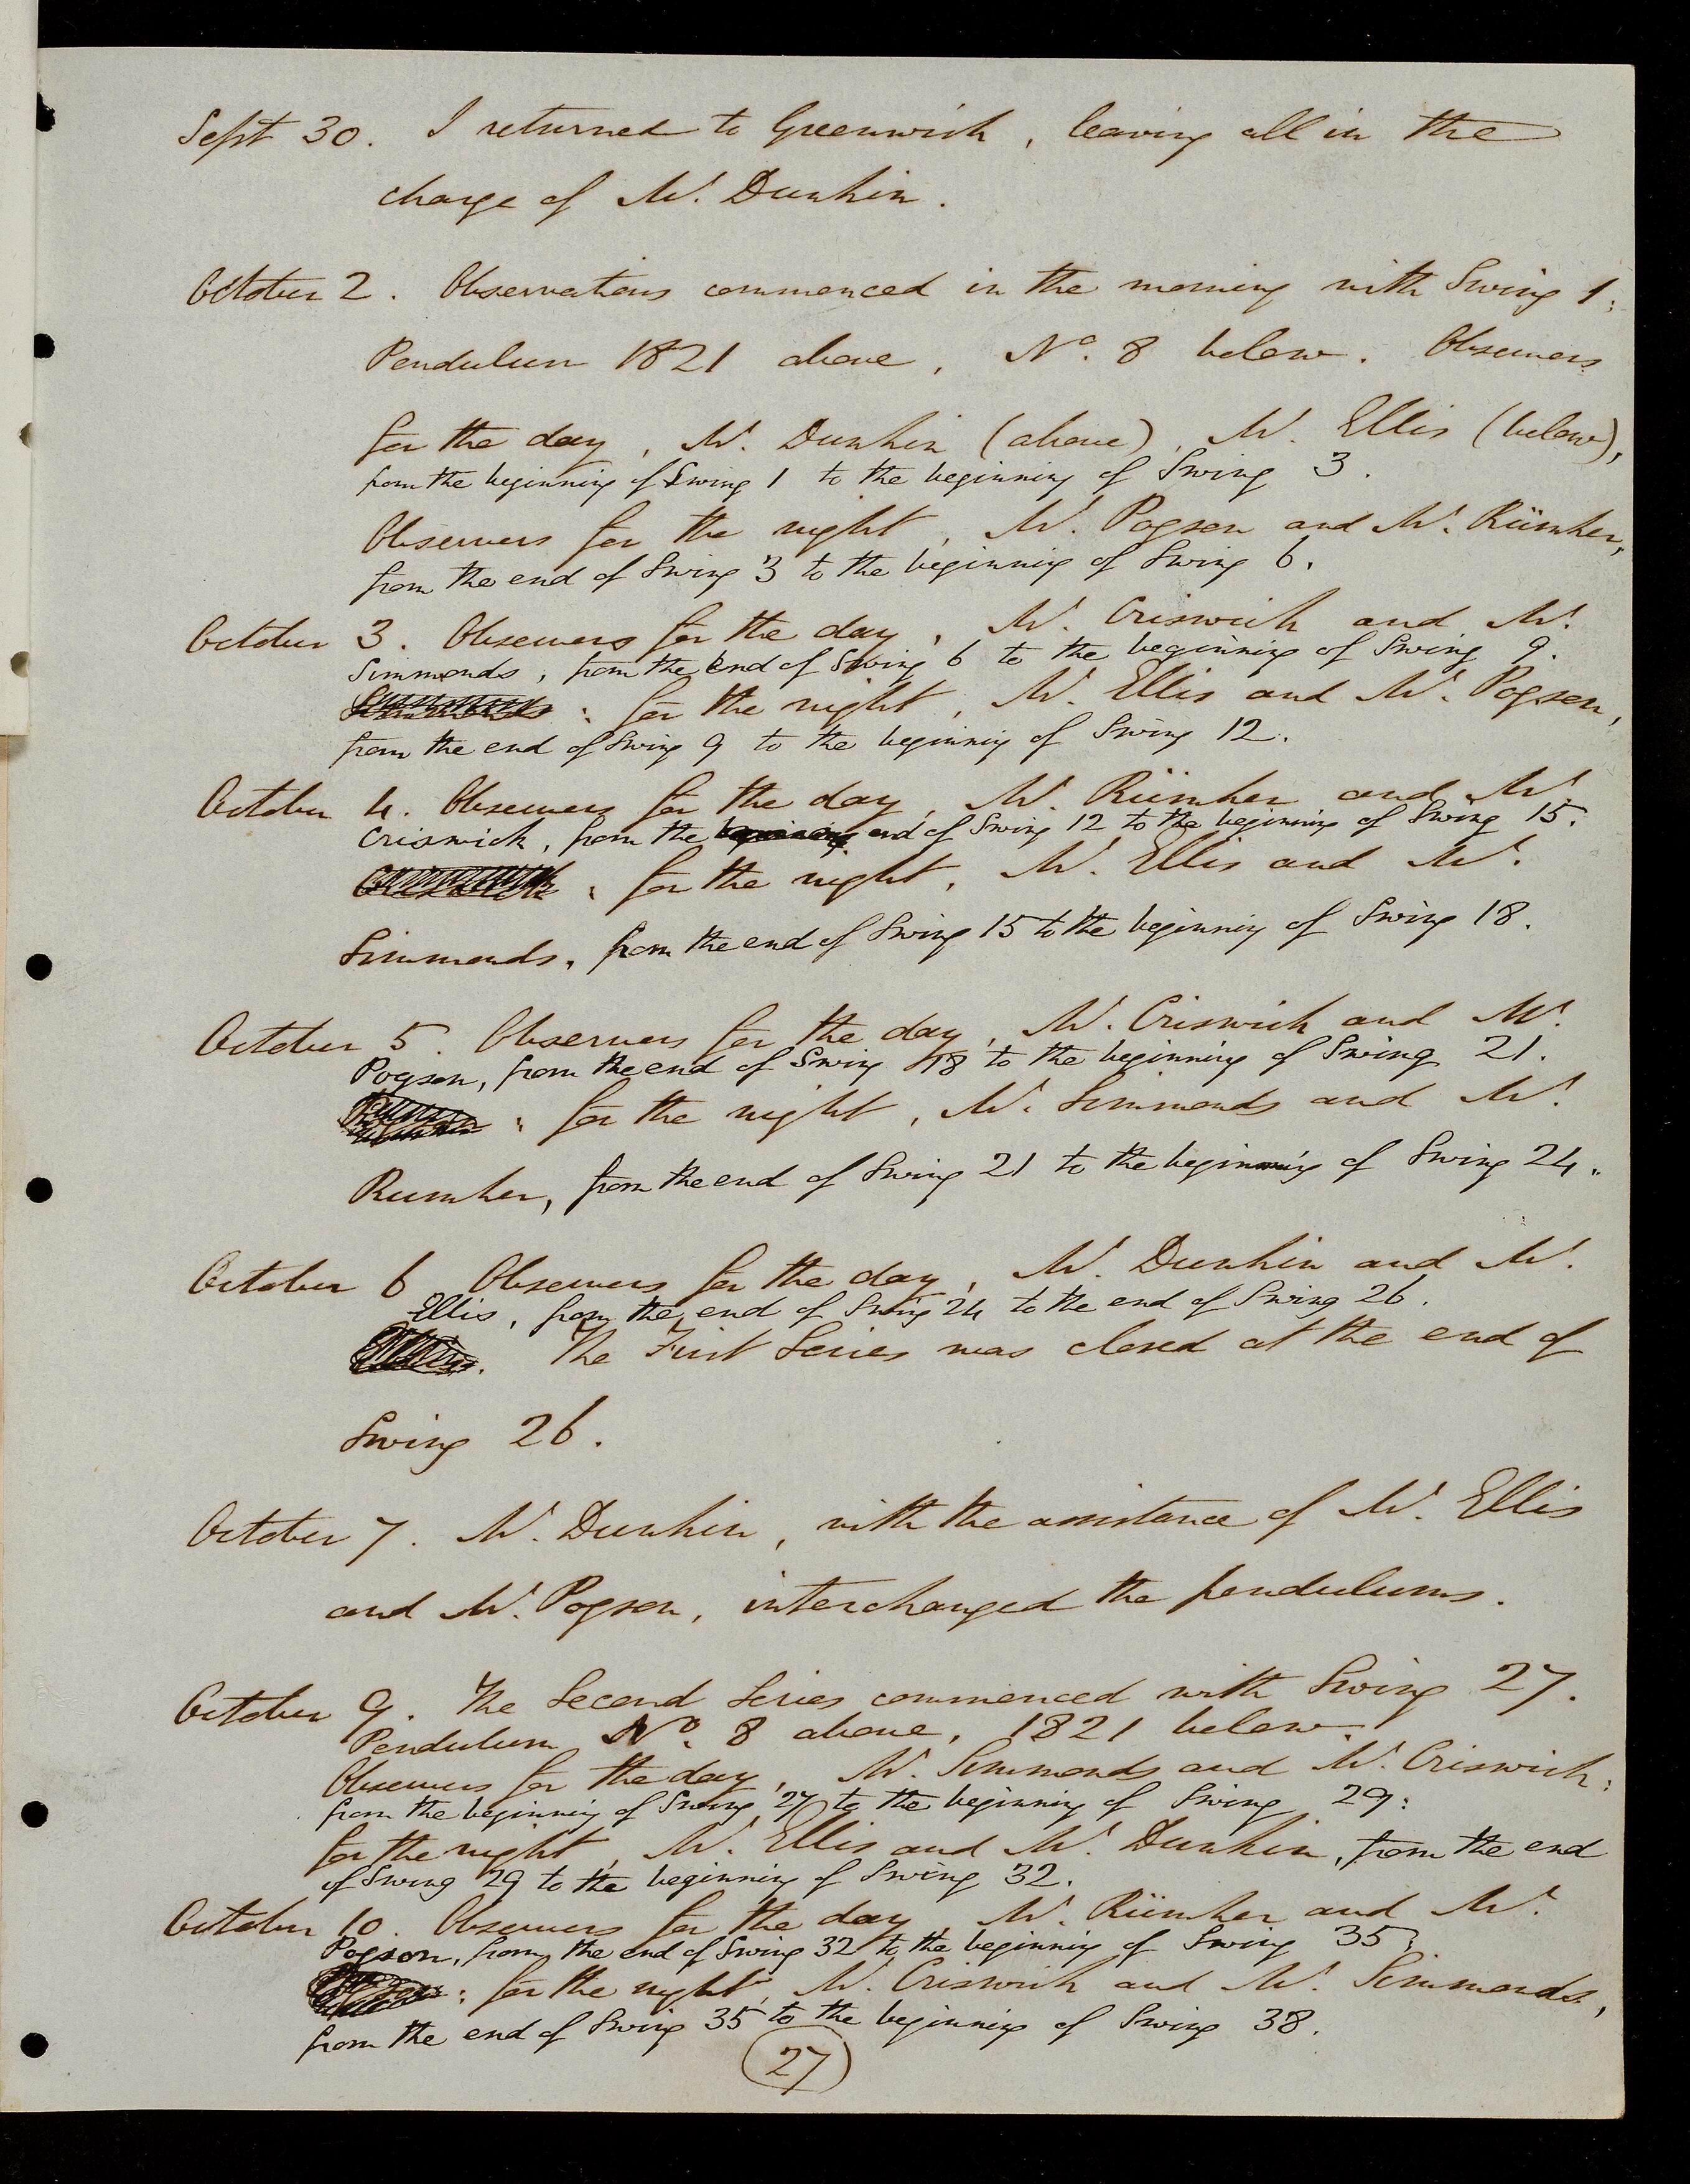 Sept 30. I returned to Greenwich, leaving all in the
charge of Mr. Dunkin.
October 2. Observations commenced in the morning with Swing 1:
Pendulum 1821 above, No. 8 below. Observers
for the day, Mr. Dunkin (above), Mr. Ellis (below),
from the beginning of Swing 1 to the beginning of Swing 3.
Observers for the night, Mr. Pogson and Mr. Rümker,
from the end of Swing 3 to the beginning of Swing 6.
October 3. Observers for the day, Mr. Criswick and Mr.
Simmonds, from the end of Swing 6 to the beginning of Swing 9.
: for the night, Mr. Ellis and Mr. Pogson,
from the end of Swing 9 to the beginning of Swing 12.
October 4. Observers for the day, Mr. Rümker and Mr.
Criswick, from the beginning end of Swing 12 to the beginning of Swing 15.
: for the night, Mr. Ellis and Mr.
Simmonds, from the end of Swing 15 to the beginning of Swing 18.
October 5. Observers for the day, Mr. Criswick and Mr.
Pogson, from the end of Swing 18 to the beginning of Swing 21.
: for the night, Mr. Simmonds and Mr.
Rumker, from the end of Swing 21 to the beginning of Swing 24.
October 6 Observers for the day, Mr. Dunkin and Mr.
Ellis, from the end of Swing 24 to the end of Swing 26.
. The First Series was closed at the end of
Swing 26.
October 7. Mr. Dunkin, with the assistance of Mr. Ellis
and Mr. Pogson, interchanged the pendulums.
October 9. The Second Series commenced with Swing 27.
Pendulum No. 8 above, 1821 below.
Observers for the day, Mr. Simmonds and Mr. Criswick:
from the beginning of Swing 27 to the beginning of Swing 29:
for the night, Mr. Ellis and Mr. Dunkin, from the end
of Swing 29 to the beginning of Swing 32.
October 10. Observers for the day, Mr. Rümker and Mr.
Pogson, from the end of Swing 32 to the beginning of Swing 35;
: for the night, Mr. Criswick and Mr. Simmonds,
from the end of Swing 35 to the beginning of Swing 38.
27